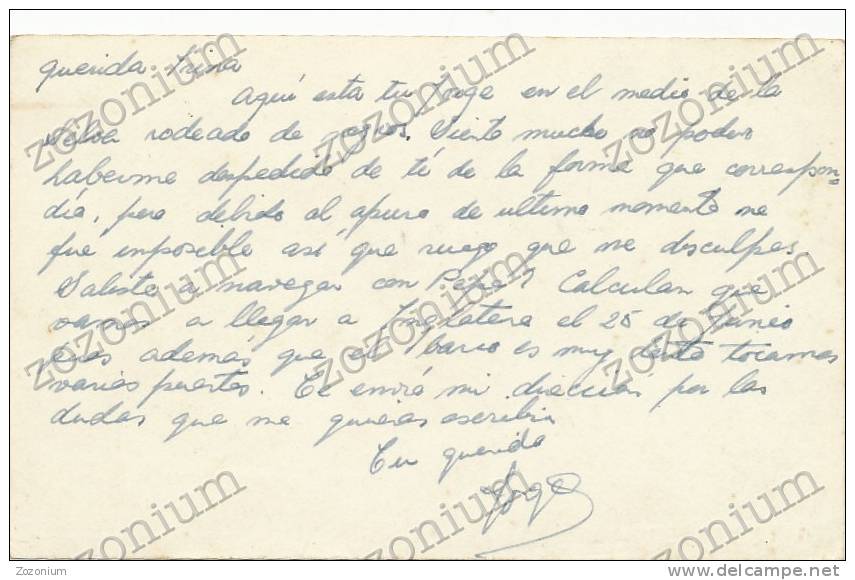 querida: Irina
Aquí esta tu Jorge en el medio de la
Selva rodeado de negros. Siento mucho no poder
haberme despedido de tí de la forma que correspon=
día, pero debido al apuro de ultimo momento me
fué imposible así que ruego que me disculpes
Saliste a navegar con Pepe? Calculan que
vamos a llegar a Inglatera el 25 de Junio
pues además que el barco es muy lento tocamos
varios puertos. Te enviá mi dirección por las
dudas que me quieras escribir
Tu querido
Jorge
zozonium
zozonium
zozonium
zozonium
zozonium
zozonium
zozonium
zozonium
zozonium
Zozonium
delcampe.net